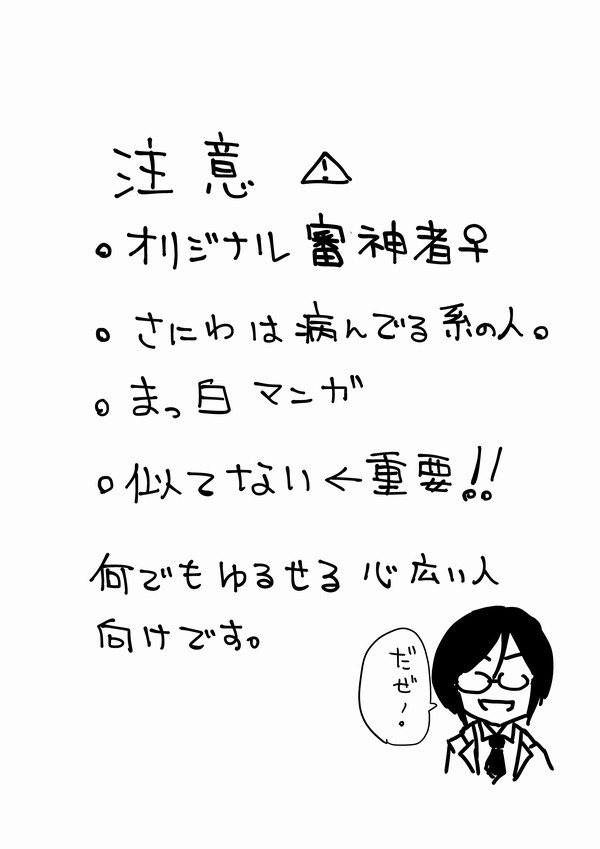 注意 ⚠
。オリジナル審神者♀
。さにわは病んでる系の人。
。まっ白マンガ
。似てない←重要!!
何でもゆるせる心広い人
向けです。
だぜ/。